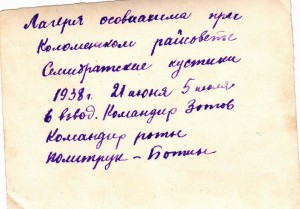 Лагеря осовиахима при
Коломенском райсовете
Семибратские кустики
1938 г. 21 июня 5 июля
6 взвод. Командир Зотов
Командир роты
политрук - Ботин